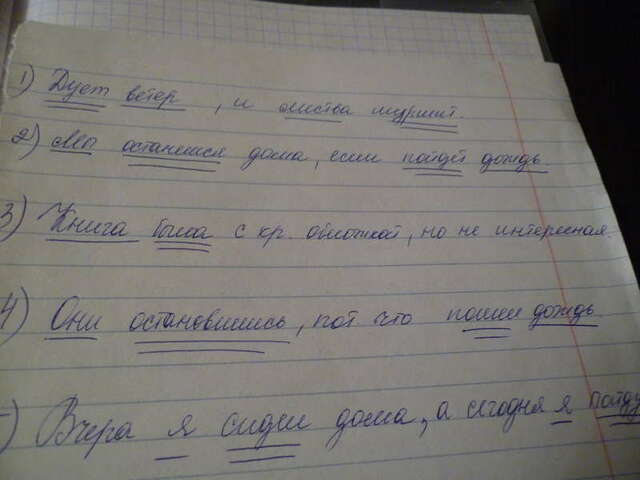 1) Дует ветер, и листва шуршит.
2) Мы останемся дома, если пойдёт дождь.
3) Книга была с кр. обложкой, но не интересная.
4) Они остановились, пот. что пошел дождь.
) Вчера я сидел дома, а сегодня я пойду